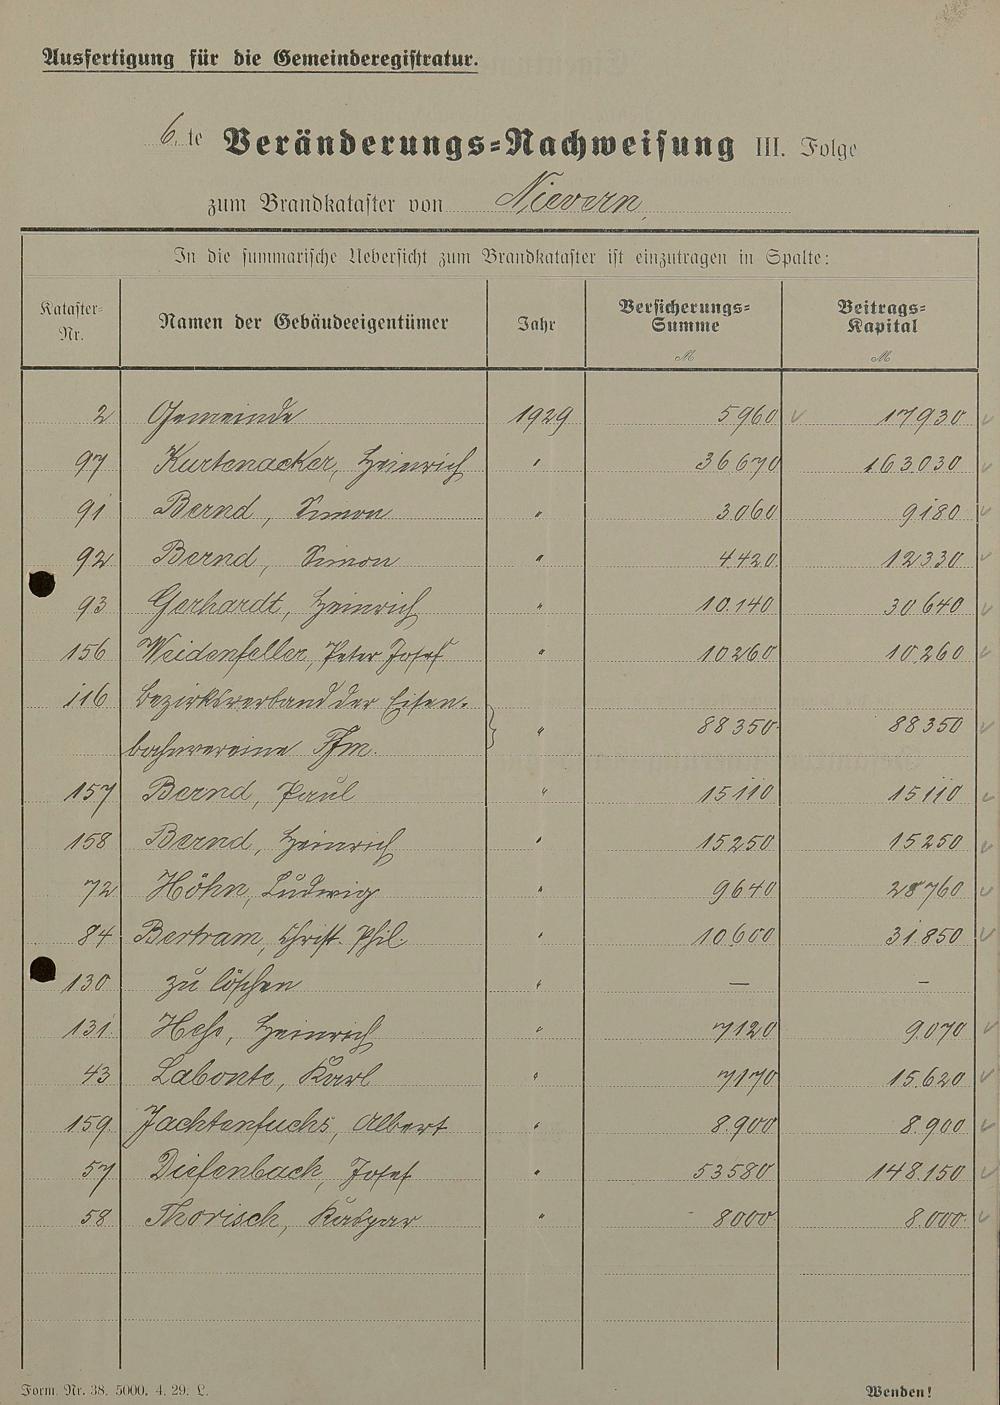 Ausfertigung für die Gemeinderegistratur.
6. te Veränderungs-Nachweisung III. Folge
zum Brandkataster von Nievern
In die summarische Uebersicht zum Brandkataster ist einzutragen in Spalte:
Kataster-Nr. Namen der Gebäudeeigentümer Jahr Versicherungs-Summe Beitrags-Kapital
M M
2 Gemeinde 1929 5960 17930
97 Kurtenacker, Heinrich " 36670 163.030
91 Bernd, Simon " 3060 9180
92 Bernd, Simon " 4.420 12330
93 Gerhardt, Heinrich " 10.140 30640
156 Weidenfeller, Peter Josef " 10260 10.260
116 Bezirksverband der Eisen-
bahnvereine Ffm. " 88350 88350
157 Bernd, Paul " 15110 15110
158 Bernd, Heinrich " 15250 15250
72 Höhn, Ludwig " 9640 28760
84 Bertram, Christ. Phil. " 10.600 31.850
130 zu löschen " — –
131 Heß, Heinrich " 7120 9.070
43 Labonte, Karl " 7170 15.620
159 Jachtenfuchs, Albert " 8.900 8.900
57 Diefenbach, Josef " 53580 148.150
58 Thorisch, Kaspar " 8000 8.000
Form. Nr. 38. 5000. 4. 29. L.
Wenden!